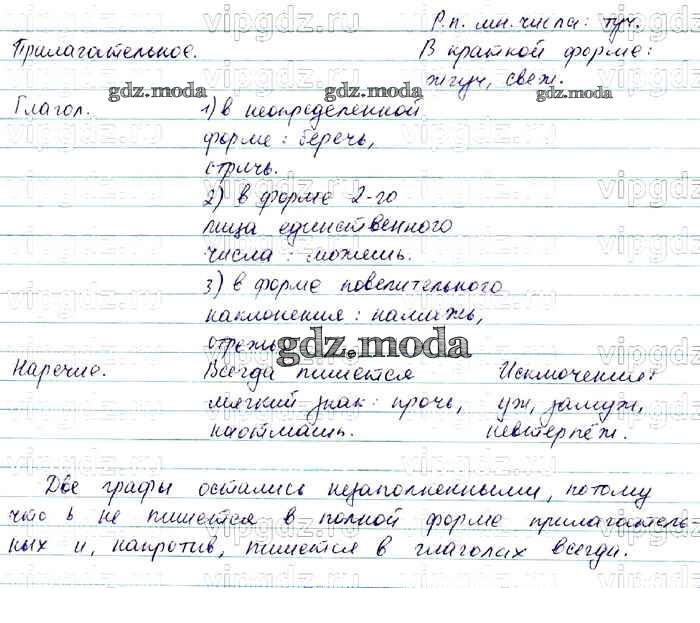 Р.п. мн. числа: туч.
Прилагательное. В краткой форме:
жгуч, свеж.
Глагол. 1) в неопределенной
форме: беречь,
стричь.
2) в форме 2-го
лица единственного
числа: можешь.
3) в форме повелительного
наклонения: намажь,
отрежь
Наречие. Всегда пишется Исключения:
мягкий знак: прочь, уж, замуж,
наотмашь. невтерпёж.
Две графы остались незаполненными, потому
что ь не пишется в полной форме прилагатель-
ных и, напротив, пишется в глаголах всегда.
gdz.moda gdz.moda gdz.moda
gdz.moda